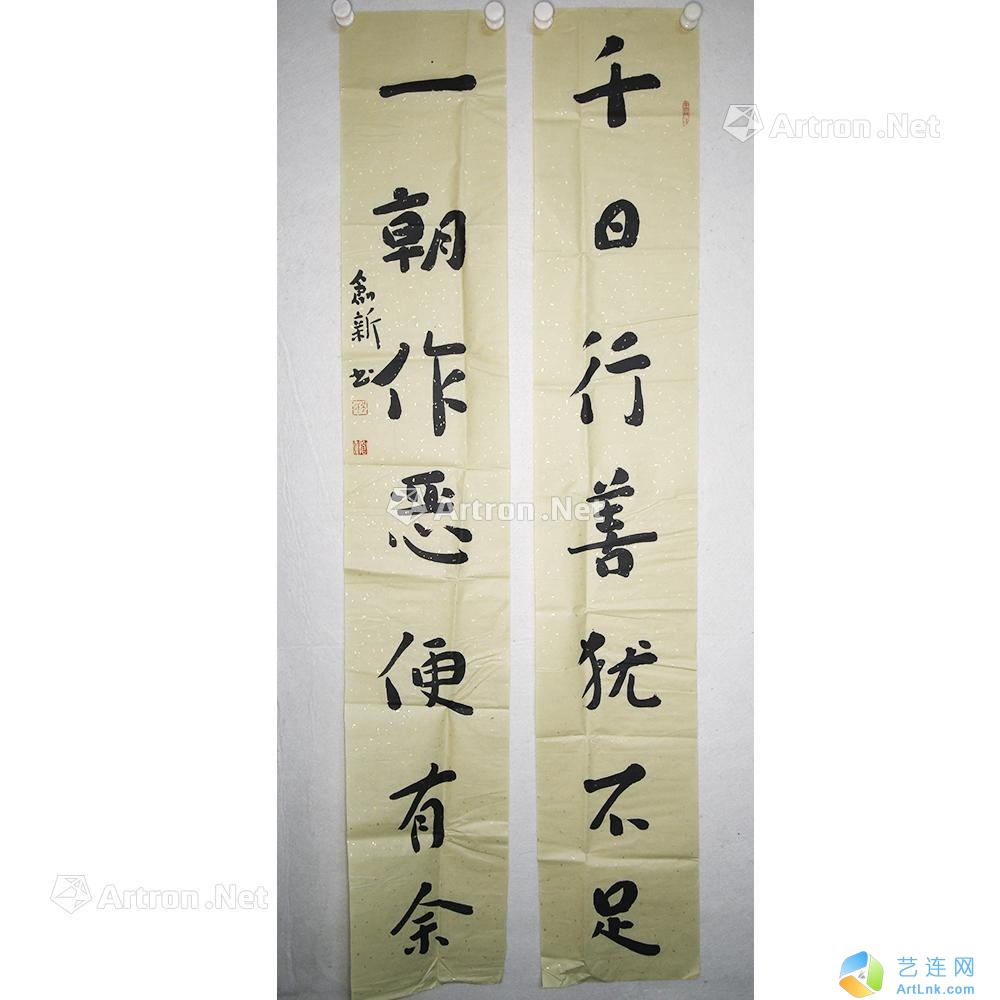 千日行善犹不足
一朝作恶便有余
創新书
Artron.Net
Artron.Net
Artron.Net
Artron.Net
艺连网
ArtLnk.com